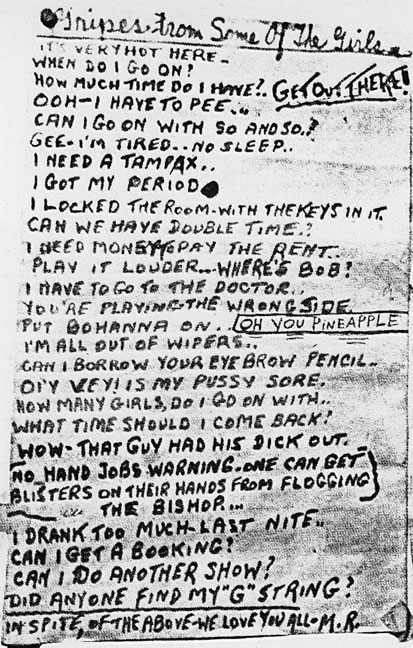 Gripes from Some Of The Girls
IT'S VERY HOT HERE-
WHEN DO I GO ON?
HOW MUCH TIME DO I HAVE?. GET OUT THERE!
OOH-I HAVE TO PEE..
CAN I GO ON WITH SO AND SO.?
GEE-I'M TIRED..NO SLEEP..
I NEED A TAMPAX..
I GOT MY PERIOD
I LOCKED THE ROOM-WITH THE KEYS IN IT.
CAN WE HAVE DOUBLE TIME.?
I NEED MONEY TO PAY THE RENT..
PLAY IT LOUDER...WHERE'S BOB?
I HAVE TO GO TO THE DOCTOR..
YOU'RE PLAYING THE WRONG SIDE
PUT BOHANNA ON.. OH YOU PINEAPPLE
I'M ALL OUT OF WIPERS..
CAN I BORROW YOUR EYE BROW PENCIL..
OIY VEY! IS MY PUSSY SORE.
HOW MANY GIRLS, DO I GO ON WITH..
WHAT TIME SHOULD I COME BACK?
WOW-THAT GUY HAD HIS DICK OUT.
NO HAND JOBS WARNING-ONE CAN GET
BLISTERS ON THEIR HANDS FROM FLOGGING
THE BISHOP...
I DRANK TOO MUCH-LAST NITE..
CAN I GET A BOOKING?
CAN I DO ANOTHER SHOW?
DID ANYONE FIND MY "G" STRING?
IN SPITE, OF THE ABOVE-WE LOVE YOU ALL-M.R.